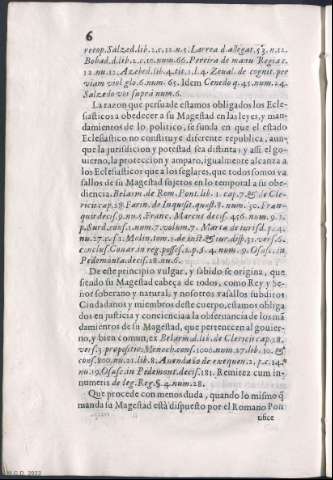 6
retop. Salzed. lib. 2. c. 12. n. 5. Larrea d. allegat. 53. n. 12.
Bobad. d. lib. 2. c. 10. num. 66. Pereira de manu Regia c.
12. nu. 12. Azebed. lib. 4. tit. 1. l. 4. Zeual. de cognit. per
viam viol. glo. 6. num. 65. Idem Cenedo q. 45. num. 24.
Salzedo vbi suprà num. 6.
La razon que persuade estamos obligados los Ecle-
siasticos a obedecer a su Magestad en las leyes, y man-
damientos de lo politico, se funda en que el estado
Eclesiastico no constituye diferente republica, aun-
que la jurisdicion y potestad sea distinta; y assi el go-
uierno, la proteccion y amparo, igualmente alcanza a
los Eclesiasticos que a los seglares, que todos somos va
sallos de su Magestad sujetos en lo temporal a su obe-
diencia. Belarm. de Rom. Pont. lib. 1. cap. 7. & de Cle-
ricis cap. 28. Farin. de Inquisit. quæst. 8. num. 30. Fran-
quis decis. 9. nu. 5. Franc. Marcus decis. 456. num. 9. 2.
p. Surd. cons. 1. num. 7. volum. 7. Marta de iurisd. p. 4.
nu. 27. c. 52. Molin. tom. 2. de inst. & iur. disp. 31. vers. 6.
conclus. Couar. in reg. possess. 2. p. §. 4. num. 9. Osasc. in
Pedemonta. decis. 28. nu. 6.
De este principio vulgar, y sabido se origina, que
siendo su Magestad cabeça de todos, como Rey y Se-
ñor soberano y natural, y nosotros vasallos subditos
Ciudadanos y miembros deste cuerpo, estamos obliga
dos en justicia y conciencia a la obseruancia de los mã
damientos de su Magestad, que pertenecen al gouier-
no, y bien comun, ex Belarm. d. lib. de Clericis cap. 28.
vers. 3. propositio. Menoch. cons. 100. num. 37. lib. 10. &
cons. 800. nu. 21. lib. 8. Auendaño de exequen. 2. p. c. 14.
nu. 19. Osasc. in Pedemont. decis. 181. Remitez cum in-
numeris de leg. Reg. §. 4. num. 28.
Que procede con menos duda, quando lo mismo q̃
manda su Magestad està dispuesto por el Romano Pon
tifice